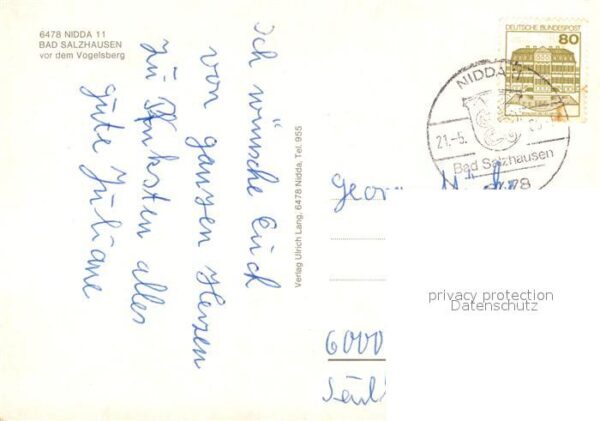 6478 NIDDA 11
BAD SALZHAUSEN
vor dem Vogelsberg
Ich wünsche Euch
von ganzen Herzen
zu Pfinksten alles
gute Juliane
Verlag Ulrich Lang, 6478 Nidda, Tel. 955
DEUTSCHE BUNDESPOST
80
NIDDA
21.-5.
Bad Salzhausen
Geor
privacy protection
Datenschutz
6000